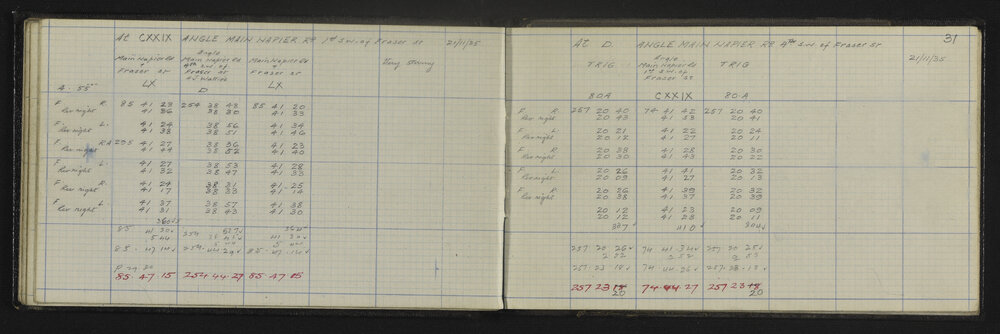 At CXXIX ANGLE MAIN NAPIER RD 1st S.W. of Fraser St 21/11/35
Main Napier Rd Angle Main Napier Rd Main Napier Rd Very Strong
+ 4th S.W. of +
Fraser St Fraser St Fraser St
LX D LX
A. 55
F R. 85 41 23 254 38 48 85 41 20
Rev night 41 36 38 30 41 33
F. L. 41 24 38 56 41 34
Rev night 41 38 38 51 41 46
F RA 295 41 27 38 36 41 23
Rev night 41 44 38 52 41 40
F L. 41 27 38 53 41 28
Rev night 41 32 38 47 41 33
F R. 41 24 38 31 41 25
Rev night 41 17 38 33 41 14
F L. 41 37 38 57 41 38
Rev night 41 31 38 43 41 30
85 41 30 254
5 44
85. 47. 14 254. 44. 29 85. 47.
85. 47. 15 254. 44. 27 85. 47. 15
31
At D. ANGLE MAIN NAPIER RD 4th S.W. of Fraser St 21/11/35
TRIG Angle TRIG
Main Napier Rd
1st S.W. of
Fraser St
80A CXXIX 80.A
F R. 257 20 40 74 41 42 257 20 40
Rev night 20 43 41 53 20 41
F L. 20 21 41 22 20 24
Rev night 20 12 41 27 20 11
F R. 20 38 41 28 20 30
Rev night 20 30 41 43 20 22
F L. 20 26 41 41 20 32
Rev night 20 09 41 27 20 13
F R. 20 26 41 39 20 32
Rev night 20 38 41 37 20 39
20 12 41 23 20 09
20 12 41 28 20 11
307 410 304
257 20 26 74 41 34 257 20 25
2 52 2 52 2 53
257. 23. 18 74. 44. 26 257. 23. 18
257 23 18 74 44 27 257 23 18
20 20